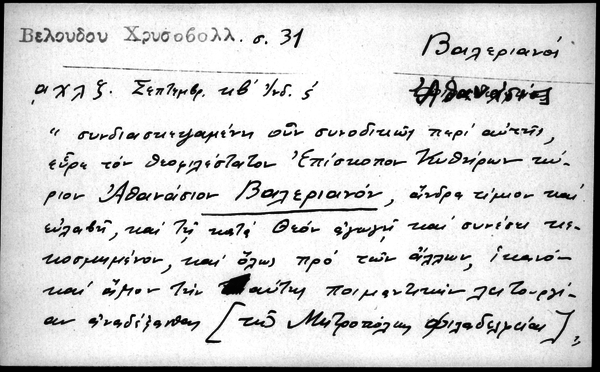 Βελουδου Χρυσοβολλ. σ. 31
Βαλεριανοί
Ἀθανάσιος
αχλζ. Σεπτεμβρ. κβ' ἰνδ. ς
" συνδιασκεψαμένη οὖν συνοδικῶς περὶ αὐτῆς,
εὗρε τὸν θεοφιλέστατον Ἐπίσκοπον Κυθήρων κύ-
ριον Ἀθανάσιον Βαλεριανόν, ἄνδρα τίμιον καὶ
εὐλαβῆ, καὶ τῇ κατὰ Θεὸν ἀγωγῇ καὶ συνέσει κε-
κοσμημένον, καὶ ὅλως πρὸ τῶν ἄλλων, ἱκανὸν
καὶ ἄξιον τὴν αὐτῆς ποιμαντικὴν λειτουργί-
αν ἀναδέξασθαι [τῆς Μητροπόλεως Φιλαδελφείας],